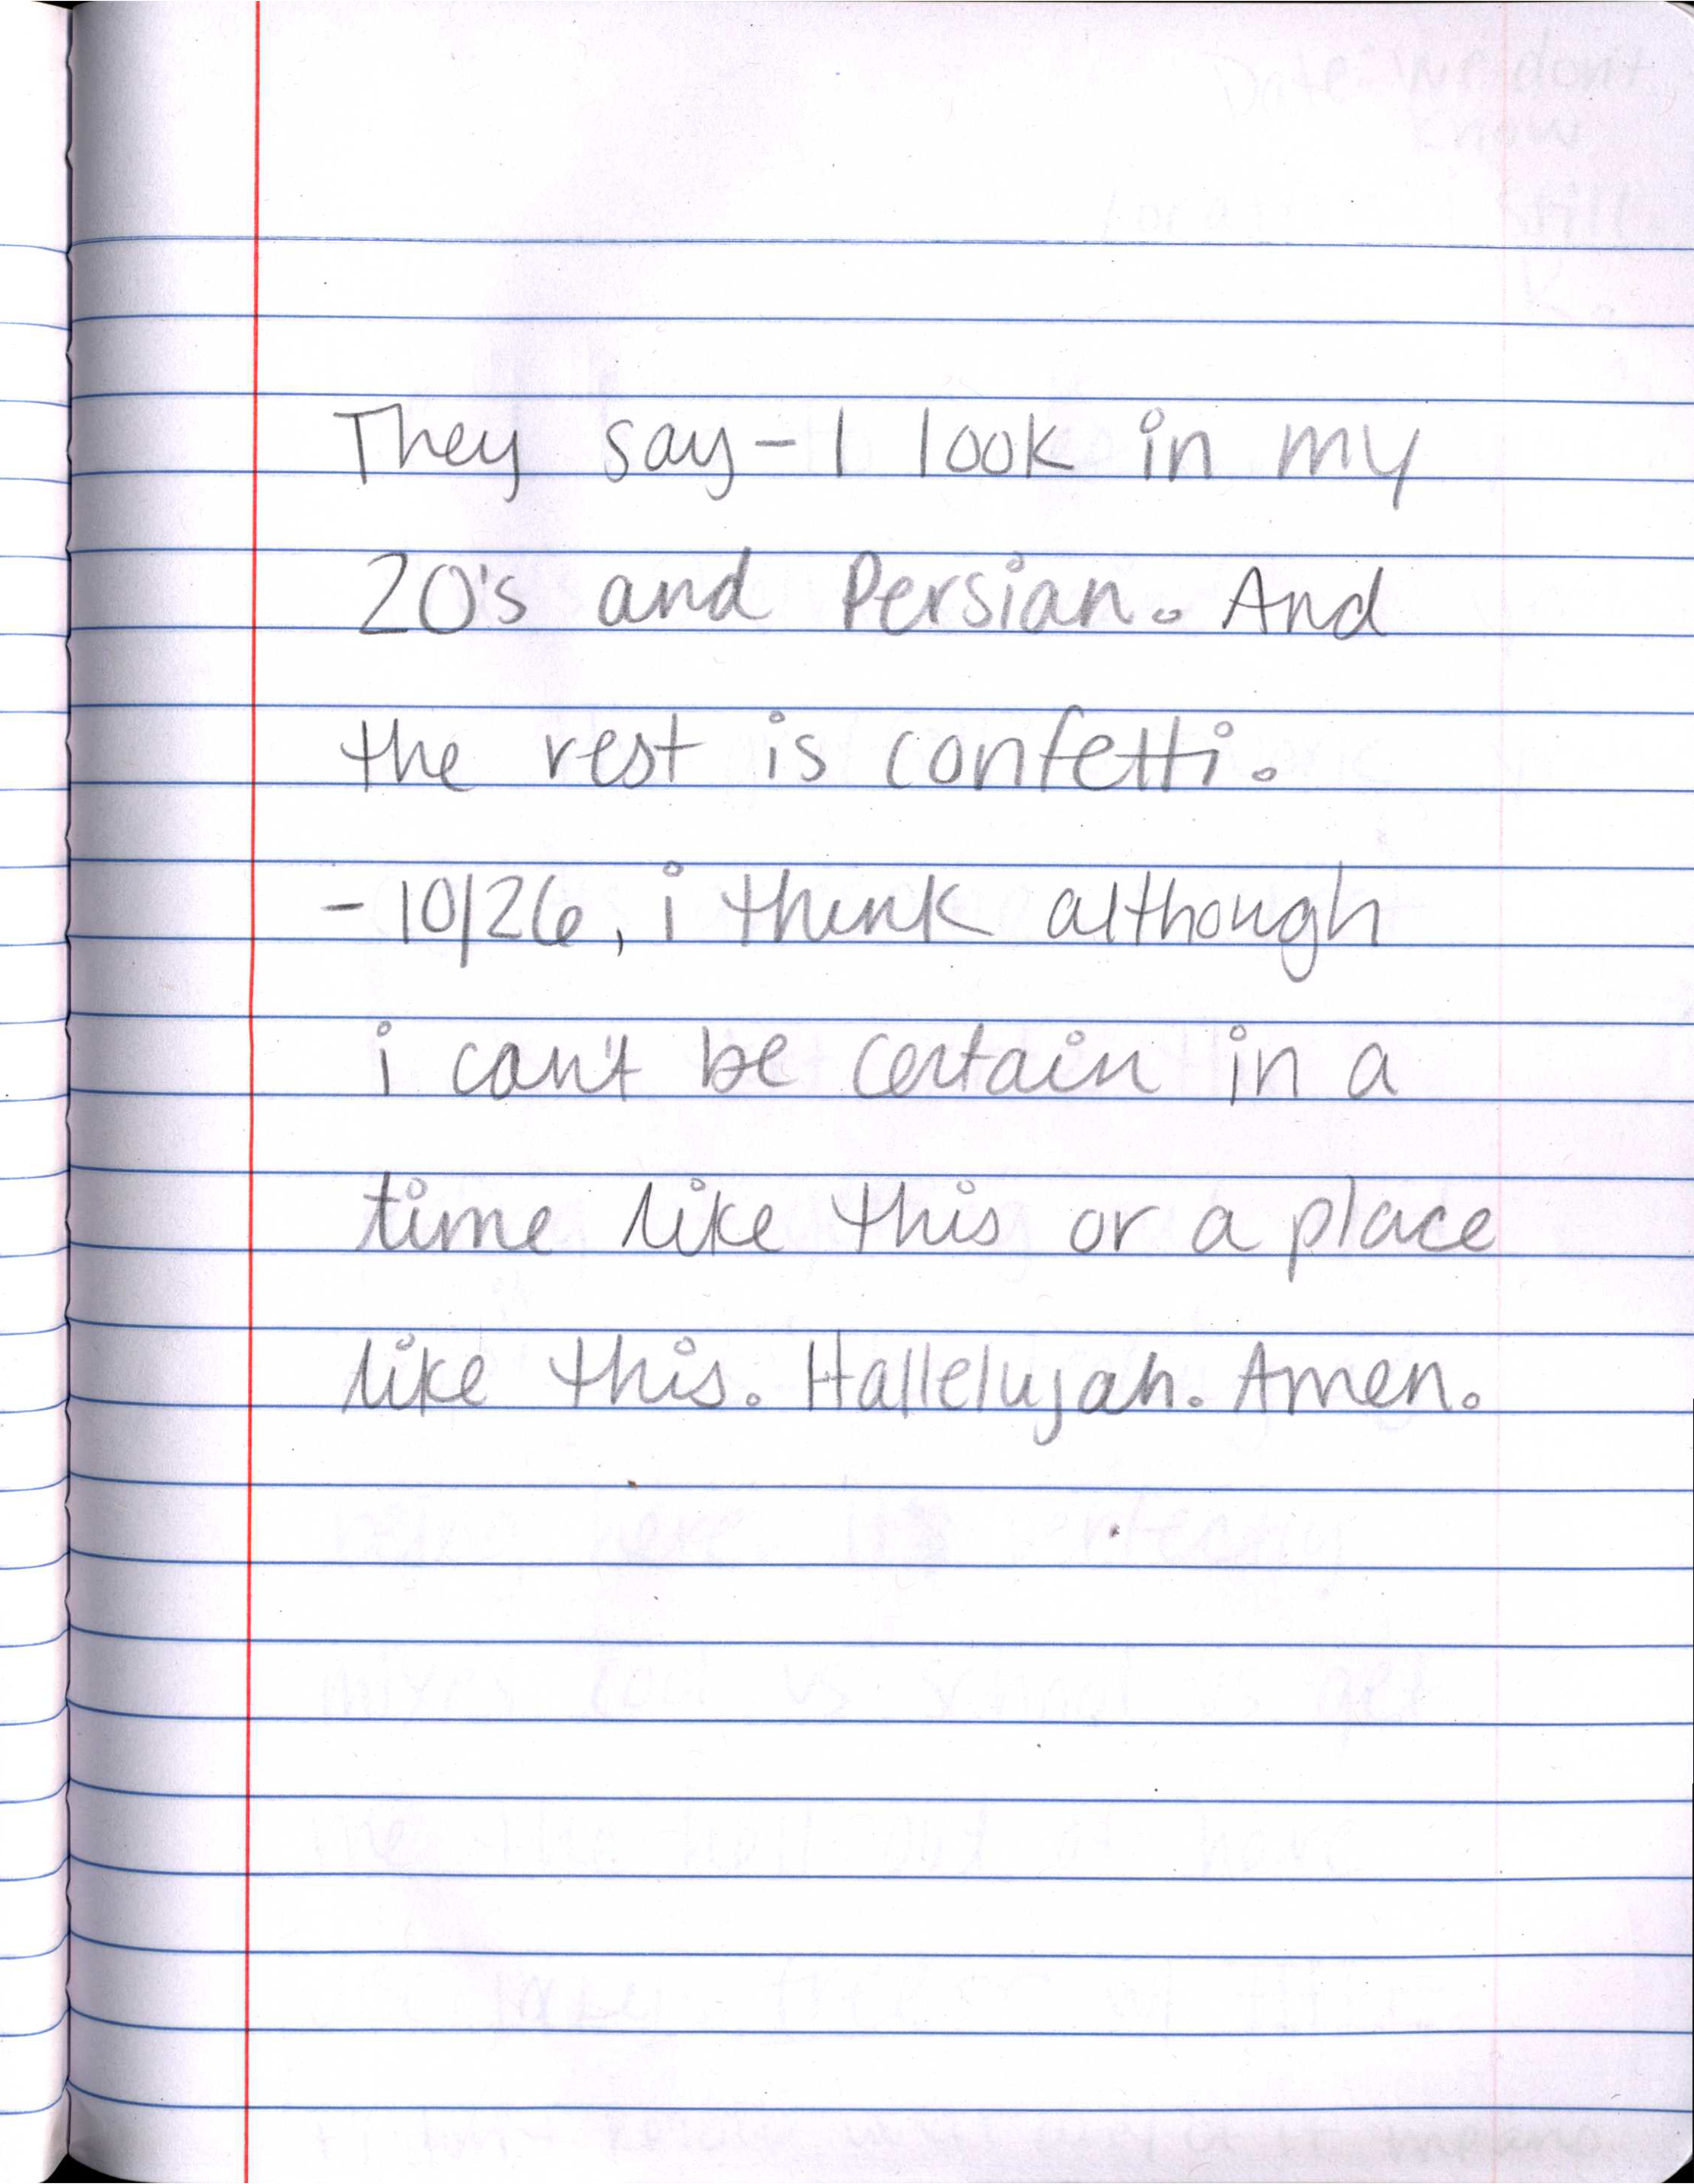 They say - I look in my
20's and Persian. And
the rest is confetti.
- 10/26, i think although
i can't be certain in a
time like this or a place
like this. Hallelujah. Amen.